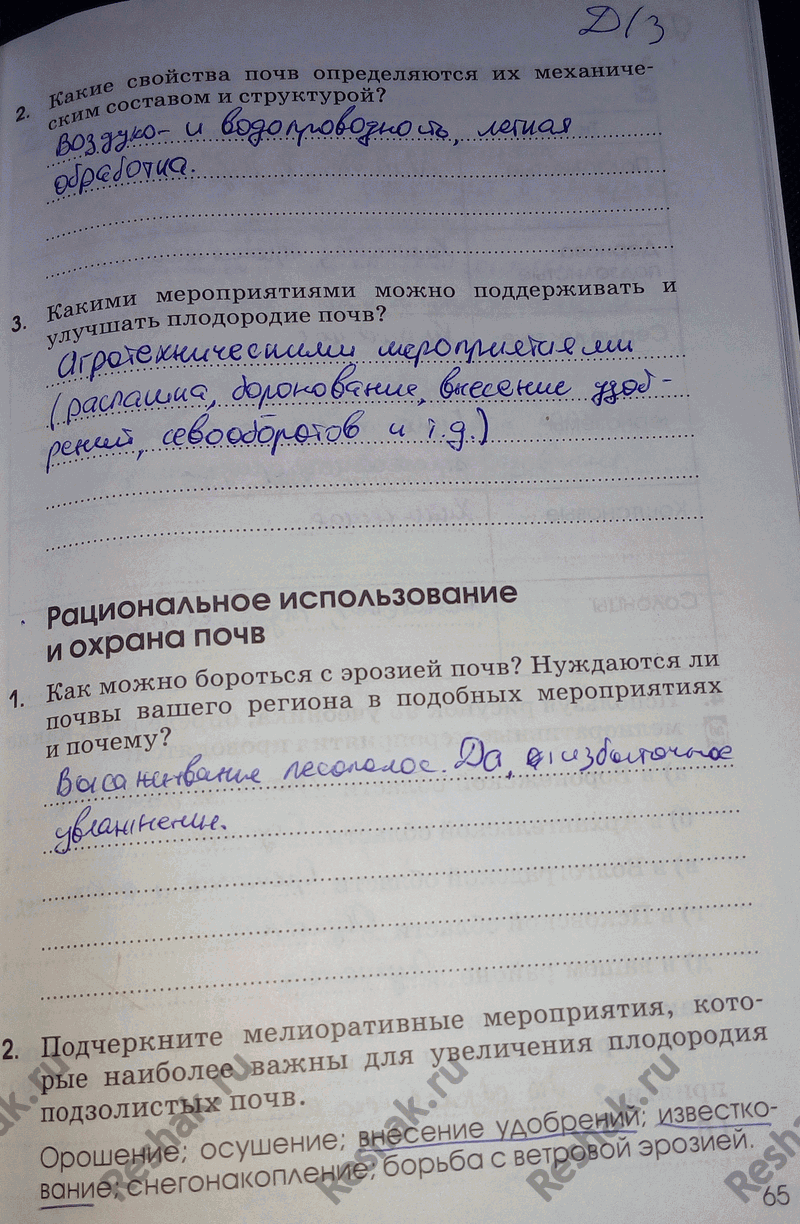 Д/з
2. Какие свойства почв определяются их механиче-
ским составом и структурой?
Воздухо- и водопроводность, легкая
обработка.
3. Какими мероприятиями можно поддерживать и
улучшать плодородие почв?
Агротехническими мероприятиями
(распашка, боронование, внесение удоб-
рений, севооборотов и т.д.)
Рациональное использование
и охрана почв
1. Как можно бороться с эрозией почв? Нуждаются ли
почвы вашего региона в подобных мероприятиях
и почему?
Высаживание лесополос. Да, избыточное
увлажнение.
2. Подчеркните мелиоративные мероприятия, кото-
рые наиболее важны для увеличения плодородия
подзолистых почв.
Орошение; осушение; внесение удобрений; известко-
вание; снегонакопление; борьба с ветровой эрозией.
65
Reshak.ru
Reshak.ru
Reshak.ru